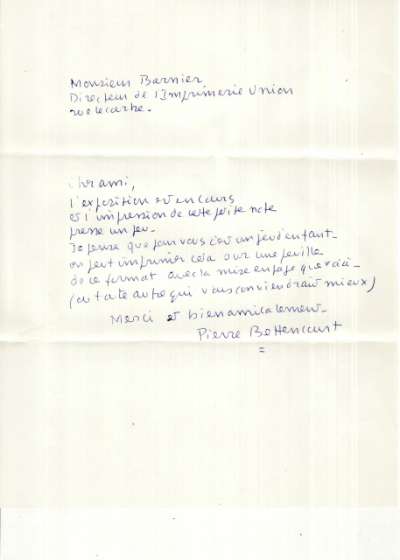 Monsieur Barnier
Directeur de l'Imprimerie Union
rue Lecarbe.
cher ami,
l'exposition est en cours
et l'impression de cette petite note
presse un peu.
Je pense que pour vous c'est un jeu d'enfant.
on peut imprimer cela sur une feuille
de ce format avec la mise en page que voici
(ou toute autre qui vous conviendrait mieux)
Merci et bien amicalement.
Pierre Bettencourt